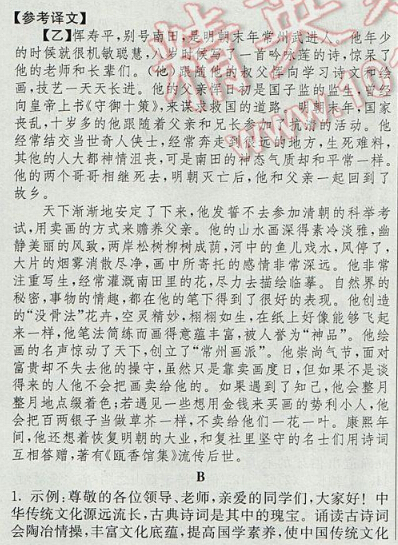 【参考译文】
【乙】恽寿平，别号南田，是明朝末年常州武进人。他年少
的时候就很机敏聪慧，八岁时候写了一首吟咏莲的诗，惊呆了
他的老师和长辈们。（他）跟随他的叔父恽向学习诗文和绘
画，技艺一天天长进。他的父亲恽日初是国子监的监生，曾经
向皇帝上书《守御十策》，来谋求救国的道路。明朝末年，国家
丧乱，十多岁的他跟随着父亲和兄长参加了抗清的活动。他
经常结交当世奇人侠士，经常奔走于边远的地方，生死难料，
其他的人大都神情沮丧，可是南田的神态气质却和平常一样。
他的两个哥哥相继死去，明朝灭亡后，他和父亲一起回到了
故乡。
天下渐渐地安定了下来，他发誓不去参加清朝的科举考
试，用卖画的方式来赡养父亲。他的山水画深得素冷淡雅，幽
静美丽的风致，两岸松树柳树成荫，河中的鱼儿戏水，风停了，
大片的烟雾消散尽净，画中所寄托的感情非常深远。他非常
注重写生，经常灌溉南田里的花，尽力去描绘临摹。自然界的
秘密，事物的情趣，都在他的笔下得到了很好的展现。他创造
的“没骨法”花卉，空灵精妙，栩栩如生，在纸上好像能够飞起
来一样，他笔法简练而画得意蕴丰富，被人誉为“神品”。他绘
画的名声惊动了天下，创立了“常州画派”。他崇尚气节，面对
富贵却不失去他的操守，虽然只是靠卖画度日，但如果不是谈
得来的人他不会把画卖给他的。如果遇到了知己，他会整月
整月地点缀着色；若遇见一些想用金钱来买画的势利小人，他
会把百两银子当做草芥一样，不卖给他们一花一叶。康熙年
间，他还想着恢复明朝的大业，和复社里坚守的名士们用诗词
互相答赠，著有《瓯香馆集》流传后世。
B
1. 示例：尊敬的各位领导、老师，亲爱的同学们，大家好！中
华传统文化源远流长，古典诗词是其中的瑰宝。诵读古诗词
会陶冶情操，丰富文化底蕴，提高国学素养，使中国传统文化